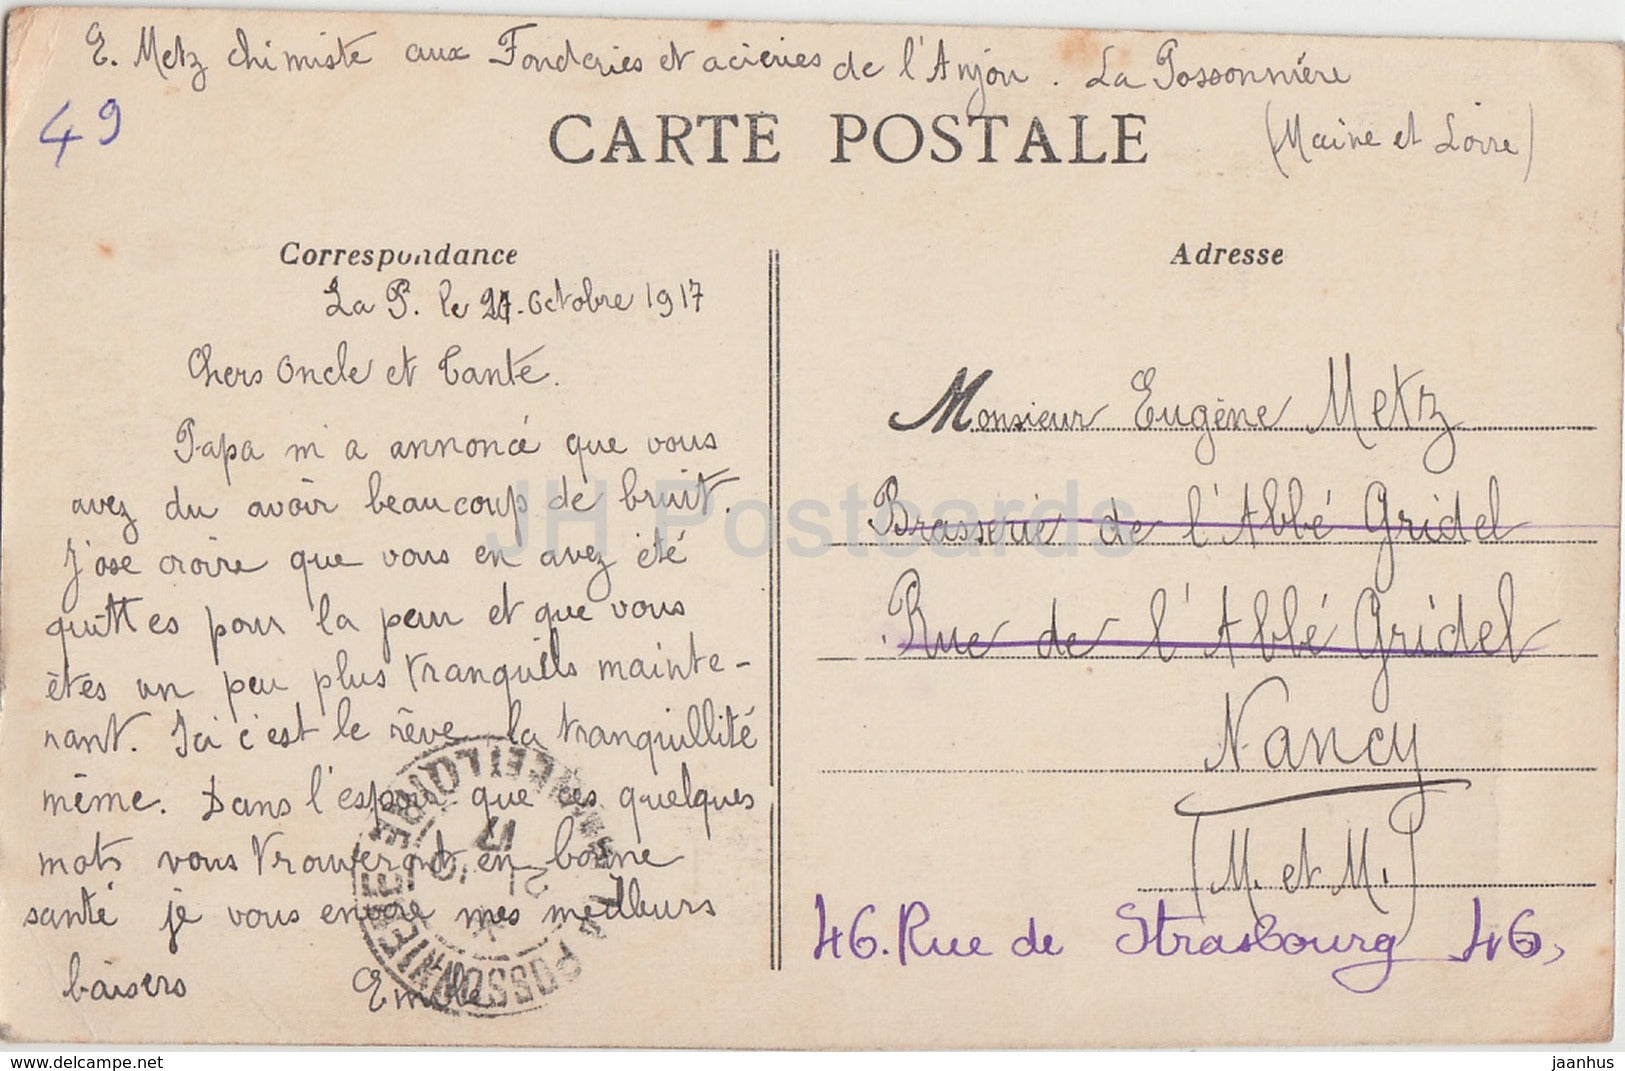 E. Metz chimiste aux Fonderies et acieries de l'Anjou. La Possonnière
(Maine et Loire)
49
CARTE POSTALE
Correspondance
La P. le 21. Octobre 1917
Chers Oncle et Tante.
Papa m'a annoncé que vous
avez du avoir beaucoup de bruit.
J'ose croire que vous en avez été
quittes pour la peur et que vous
êtes un peu plus tranquils mainte-
nant. Ici c'est le rêve, la tranquillité
même. Dans l'espoir que ces quelques
mots vous trouveront en bonne
santé je vous envoie mes meilleurs
baisers Emile
Adresse
Monsieur Eugène Metz
Brasserie de l'Abbé Gridel
Rue de l'Abbé Gridel
Nancy
(M. et M.)
46. Rue de Strasbourg 46,
JH Postcards
https://www.delcampe.net
jaanhus